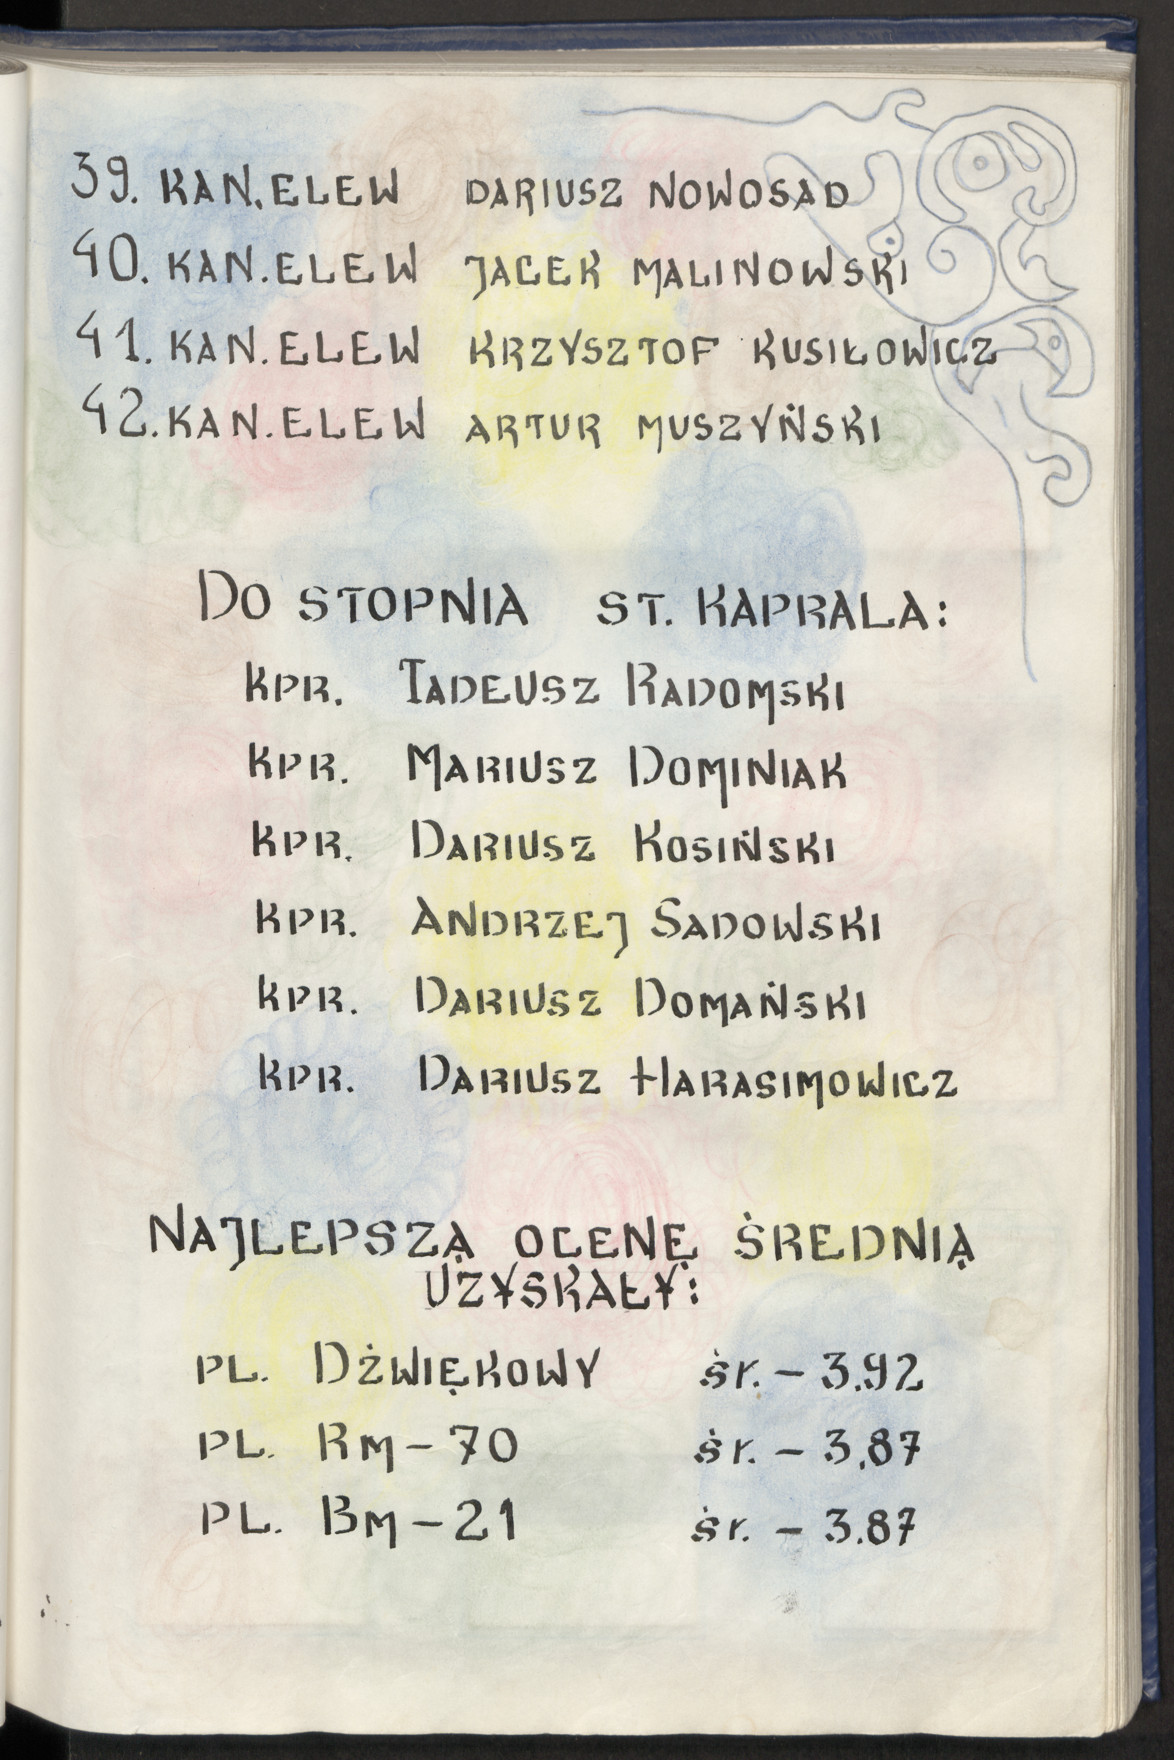 39. KAN. ELEW DARIUSZ NOWOSAD
40. KAN. ELEW JACEK MALINOWSKI
41. KAN. ELEW KRZYSZTOF KUSIŁOWICZ
42. KAN. ELEW ARTUR MUSZYŃSKI
DO STOPNIA ST. KAPRALA:
KPR. TADEUSZ RADOMSKI
KPR. MARIUSZ DOMINIAK
KPR. DARIUSZ KOSIŃSKI
KPR. ANDRZEJ SADOWSKI
KPR. DARIUSZ DOMAŃSKI
KPR. DARIUSZ HARASIMOWICZ
NAJLEPSZĄ OCENĘ ŚREDNIĄ
UZYSKAŁY:
PL. DŹWIĘKOWY śr. - 3.92
PL. RM-70 śr. - 3,87
PL. BM-21 śr. - 3.87